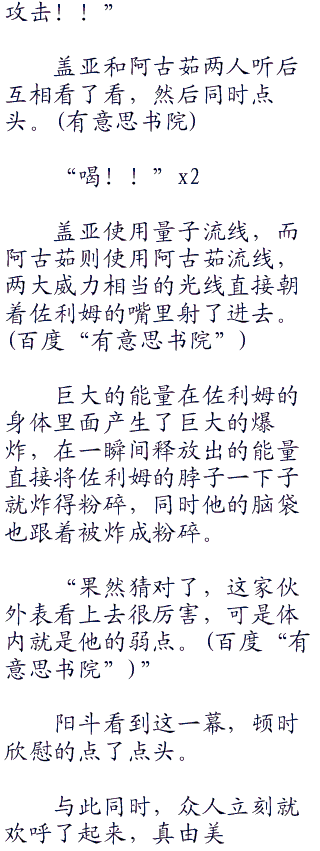 攻击！！”
盖亚和阿古茹两人听后
互相看了看，然后同时点
头。(有意思书院)
“喝！！”x2
盖亚使用量子流线，而
阿古茹则使用阿古茹流线，
两大威力相当的光线直接朝
着佐利姆的嘴里射了进去。
(百度“有意思书院”)
巨大的能量在佐利姆的
身体里面产生了巨大的爆
炸，在一瞬间释放出的能量
直接将佐利姆的脖子一下子
就炸得粉碎，同时他的脑袋
也跟着被炸成粉碎。
“果然猜对了，这家伙
外表看上去很厉害，可是体
内就是他的弱点。(百度“有
意思书院”)”
阳斗看到这一幕，顿时
欣慰的点了点头。
与此同时，众人立刻就
欢呼了起来，真由美